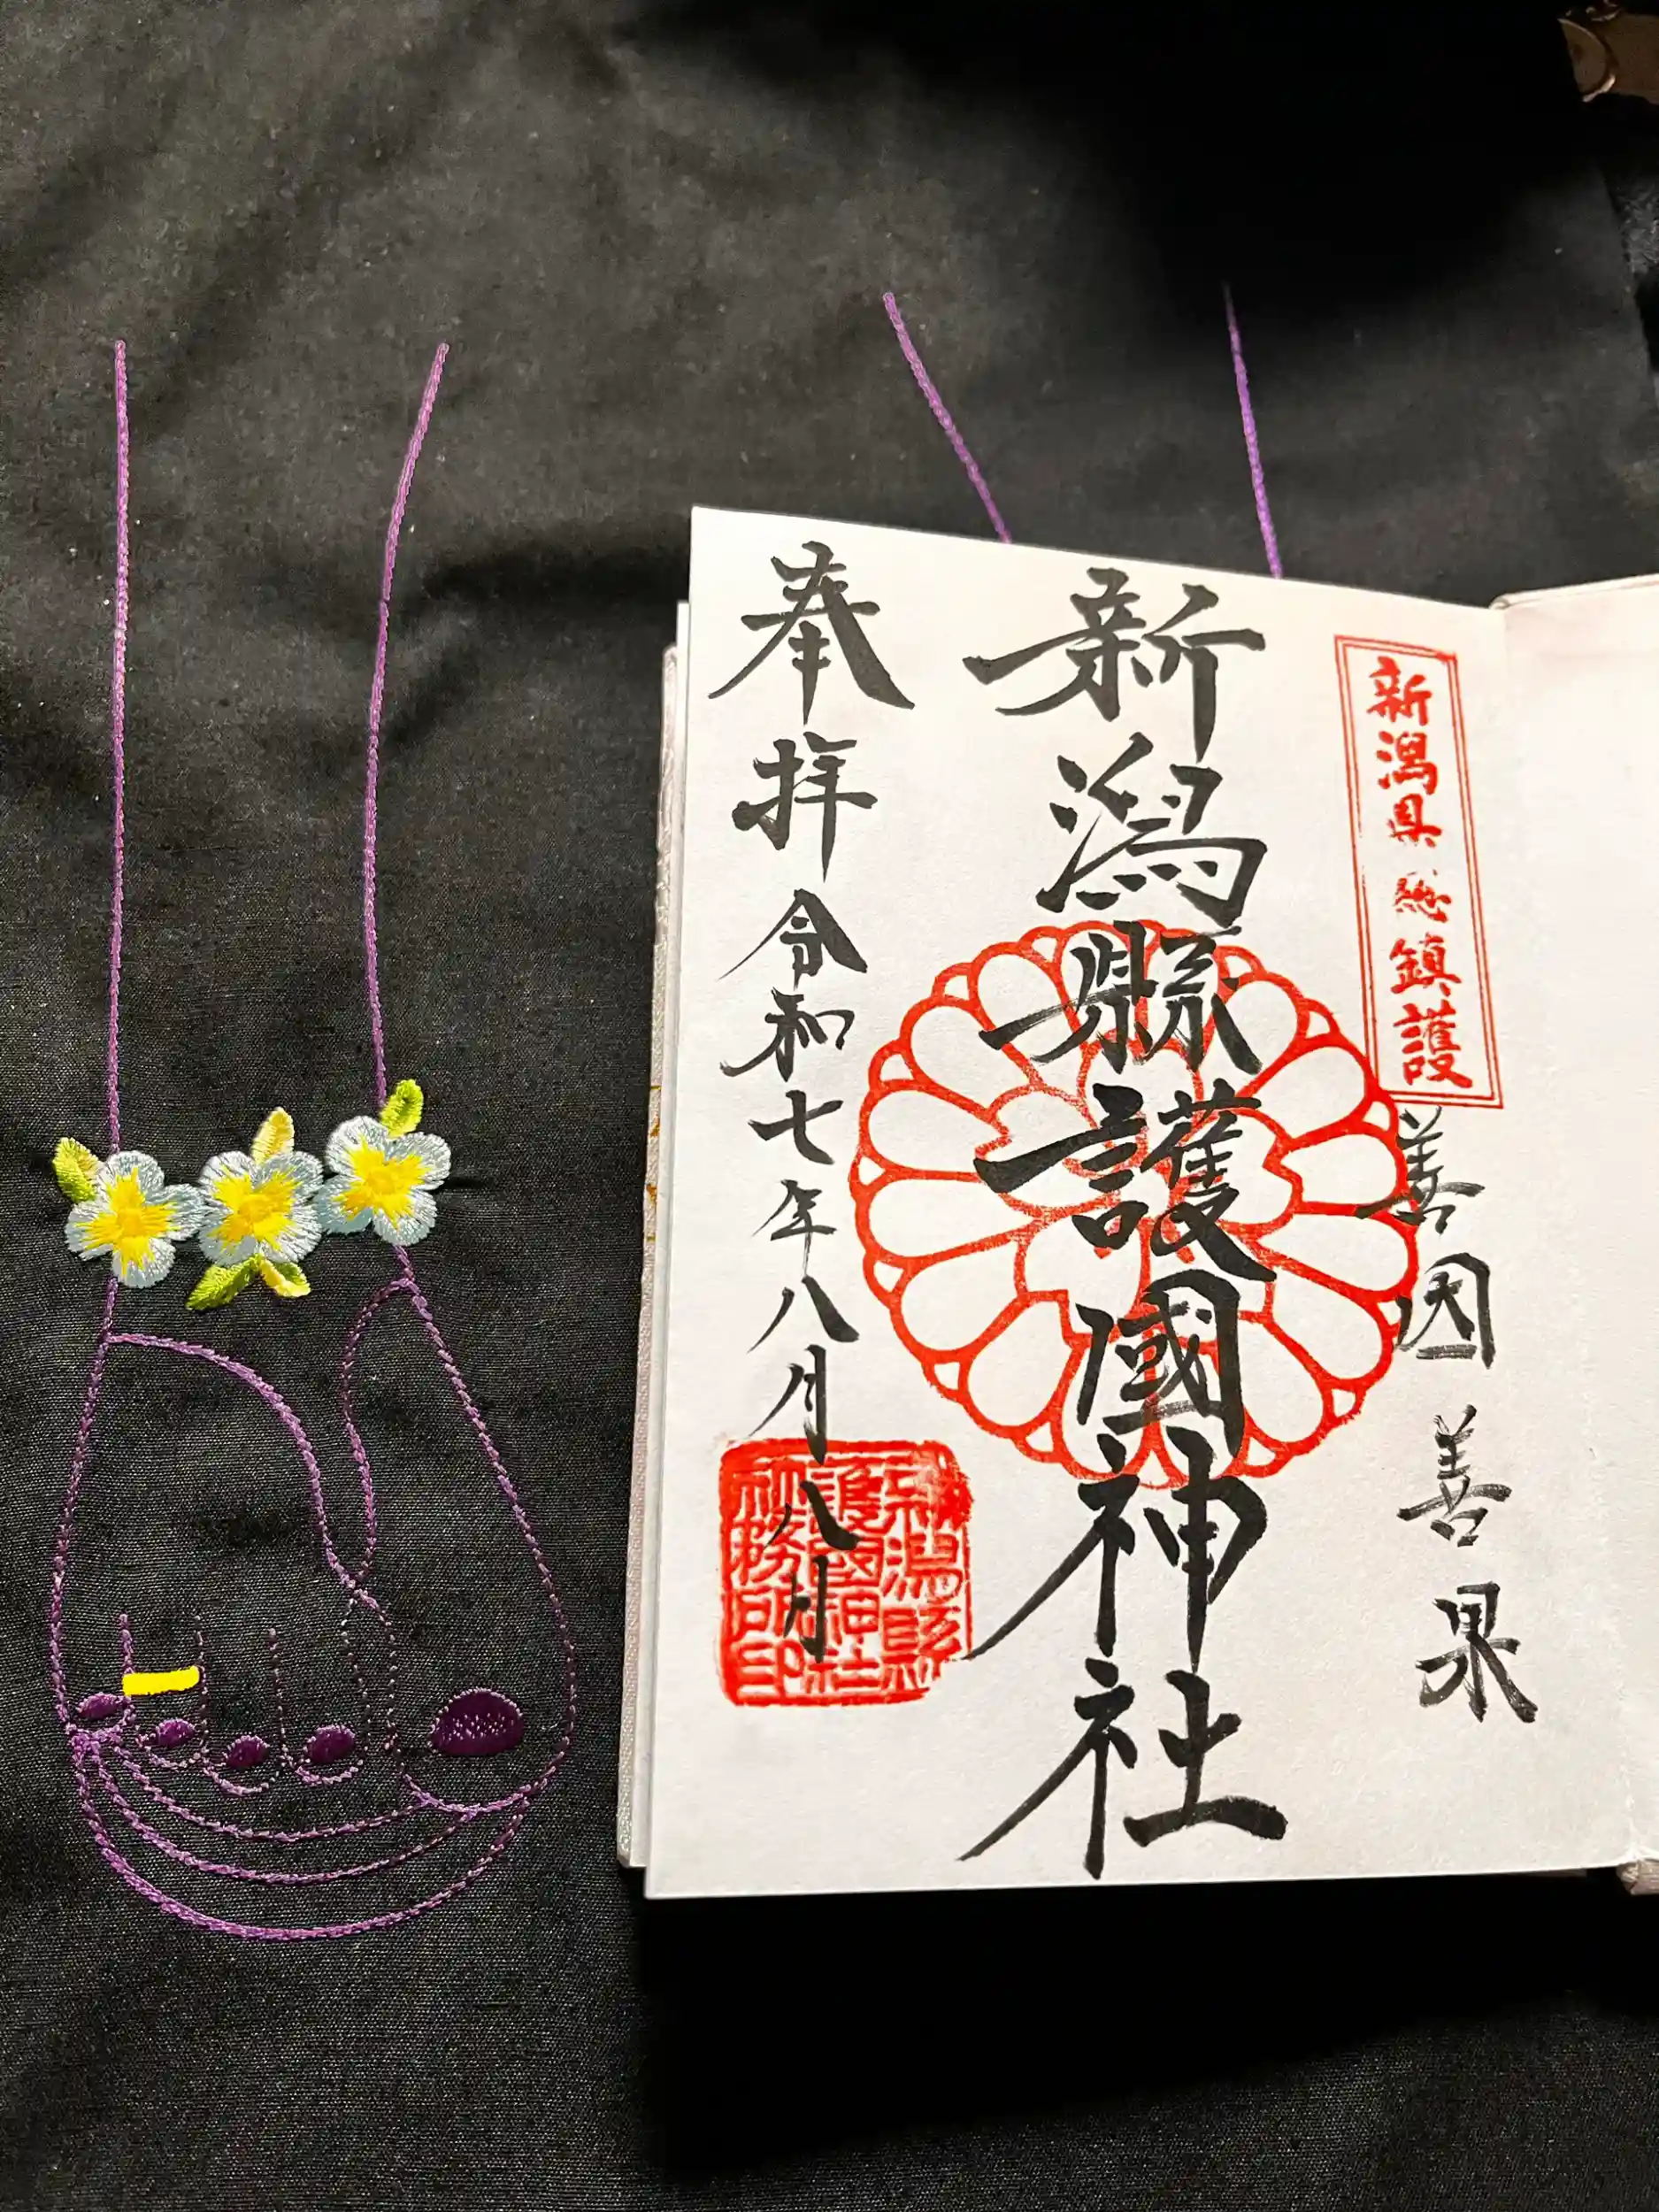 新潟県総鎮護
善因善果
新潟縣護國神社
奉拝令和七年八月八日
新潟縣
護國神社
社務所印